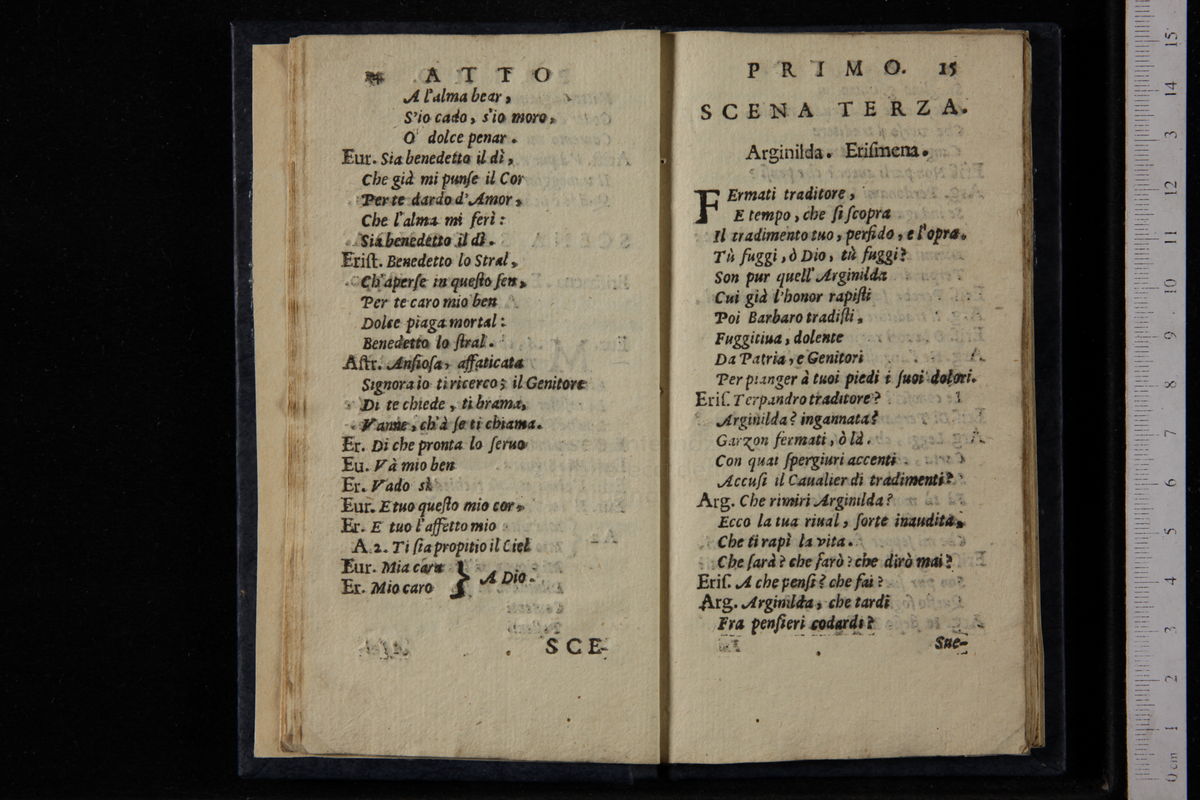 ATTO
A l'alma bear,
S'io cado, s'io moro,
O dolce penar.
Eur. Sia benedetto il dì,
Che già mi punſe il Cor
Per te dardo d'Amor,
Che l'alma mi ferì:
Sia benedetto il dì.
Eriſt. Benedetto lo Stral,
Ch'aperſe in queſto ſen,
Per te caro mio ben
Dolce piaga mortal:
Benedetto lo ſtral.
Aſtr. Anſioſa, affaticata
Signora io ti ricerco; il Genitore
Di te chiede, ti brama,
Vanne, ch'à ſe ti chiama.
Er. Di che pronta lo ſeruo
Eu. Và mio ben
Er. Vado sì
Eur. E tuo queſto mio cor,
Er. E tuo l'affetto mio
A 2. Ti ſia propitio il Ciel
Eur. Mia cara
Er. Mio caro } A Dio.
SCE-
PRIMO. 15
SCENA TERZA.
Arginilda. Eriſmena.
FErmati traditore,
E tempo, che ſi ſcopra
Il tradimento tuo, perfido, e l'opra.
Tù fuggi, ò Dio, tù fuggi?
Son pur quell' Arginilda
Cui già l'honor rapiſti
Poi Barbaro tradiſti,
Fuggitiua, dolente
Da Patria, e Genitori
Per pianger à tuoi piedi i ſuoi dolori.
Eriſ. Terpandro traditore?
Arginilda? ingannata?
Garzon fermati, ò là.
Con quai ſpergiuri accenti
Accuſi il Caualier di tradimenti?
Arg. Che rimiri Arginilda?
Ecco la tua riual, ſorte inaudita,
Che ti rapì la vita.
Che ſarà? che farò? che dirò mai?
Eriſ. A che penſi? che fai?
Arg. Arginilda, che tardi
Fra penſieri codardi?
Sue-